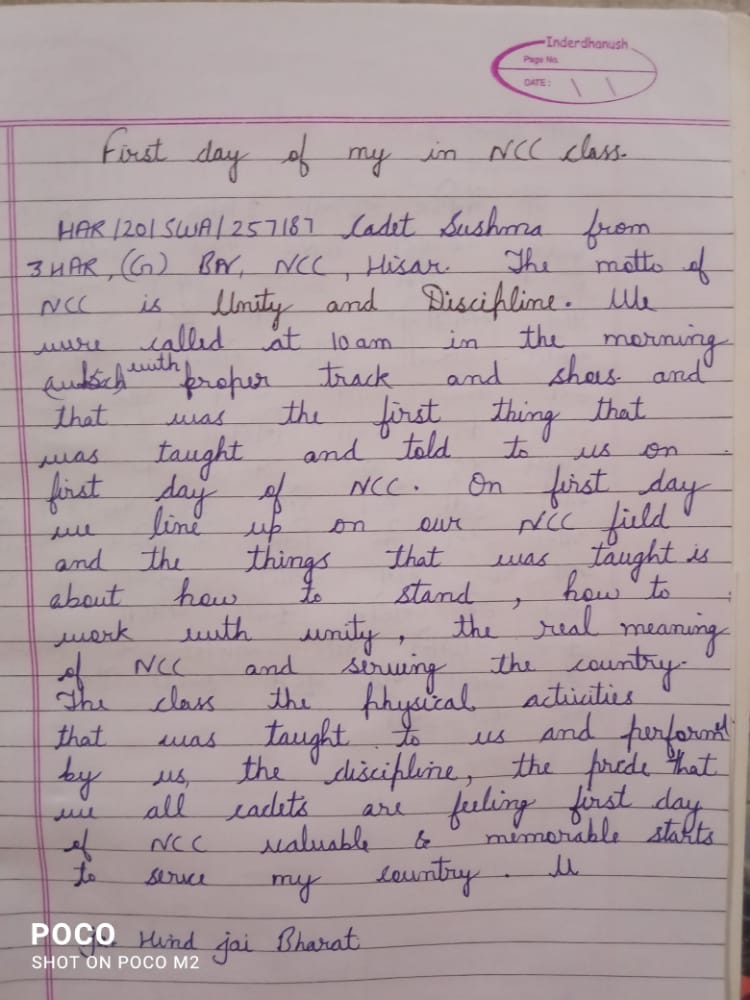 Inderdhanush
Page No.
DATE:
First day of my in NCC class.
HAR/20/SWA/257187 Cadet Sushma from
3 HAR, (G) BN, NCC, Hisar. The motto of
NCC is Unity and Discipline. We
were called at 10 am in the morning
with proper track and shoes and
that was the first thing that
was taught and told to us on
first day of NCC. On first day
we line up on our NCC field
and the things that was taught is
about how to stand, how to
work with unity, the real meaning
of NCC and serving the country.
The class the physical activities
that was taught to us and perform
by us, the discipline, the pride that
we all cadets are feeling first day
of NCC valuable & memorable starts
to serve my country.
Hind jai Bharat
POCO
SHOT ON POCO M2